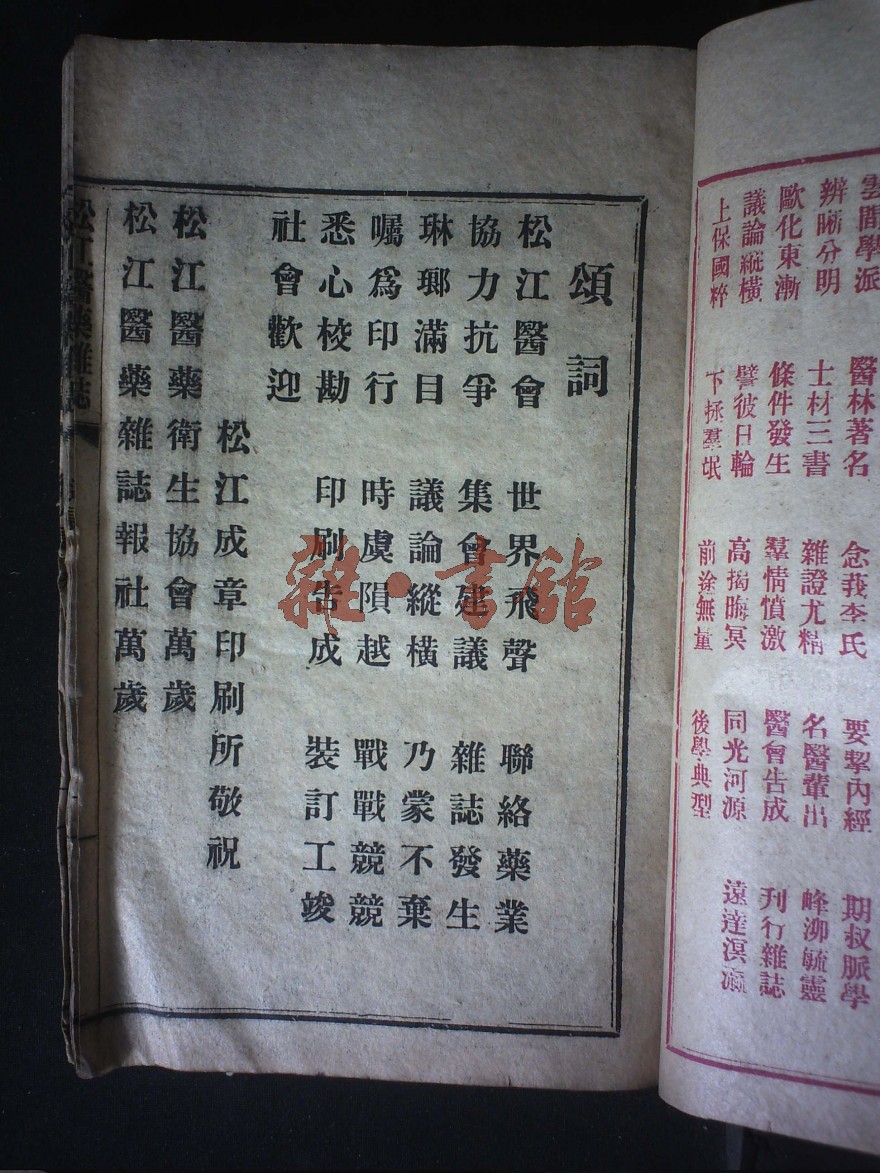 雲間學派 醫林著名 念莪李氏 要挈內經 期叔脈學
辨晰分明 士材三書 雜證尤精 名醫輩出 峰泖毓靈
歐化東漸 條件發生 羣情憤激 醫會告成 刊行雜誌
議論縱橫 譬彼日輪 高揭晦冥 同光河源 遠達溟瀛
上保國粹 下拯羣氓 前途無量 後學典型
頌詞
松江醫會 世界飛聲 聯絡藥業
協力抗爭 集會建議 雜誌發生
琳瑯滿目 議論縱橫 乃蒙不棄
囑爲印行 時虞隕越 戰戰競競
悉心校勘 印刷告成 裝訂工竣
社會歡迎
松江成章印刷所敬祝
松江醫藥衛生協會萬歲
松江醫藥雜誌報社萬歲
松江醫藥雜誌
雜·書館